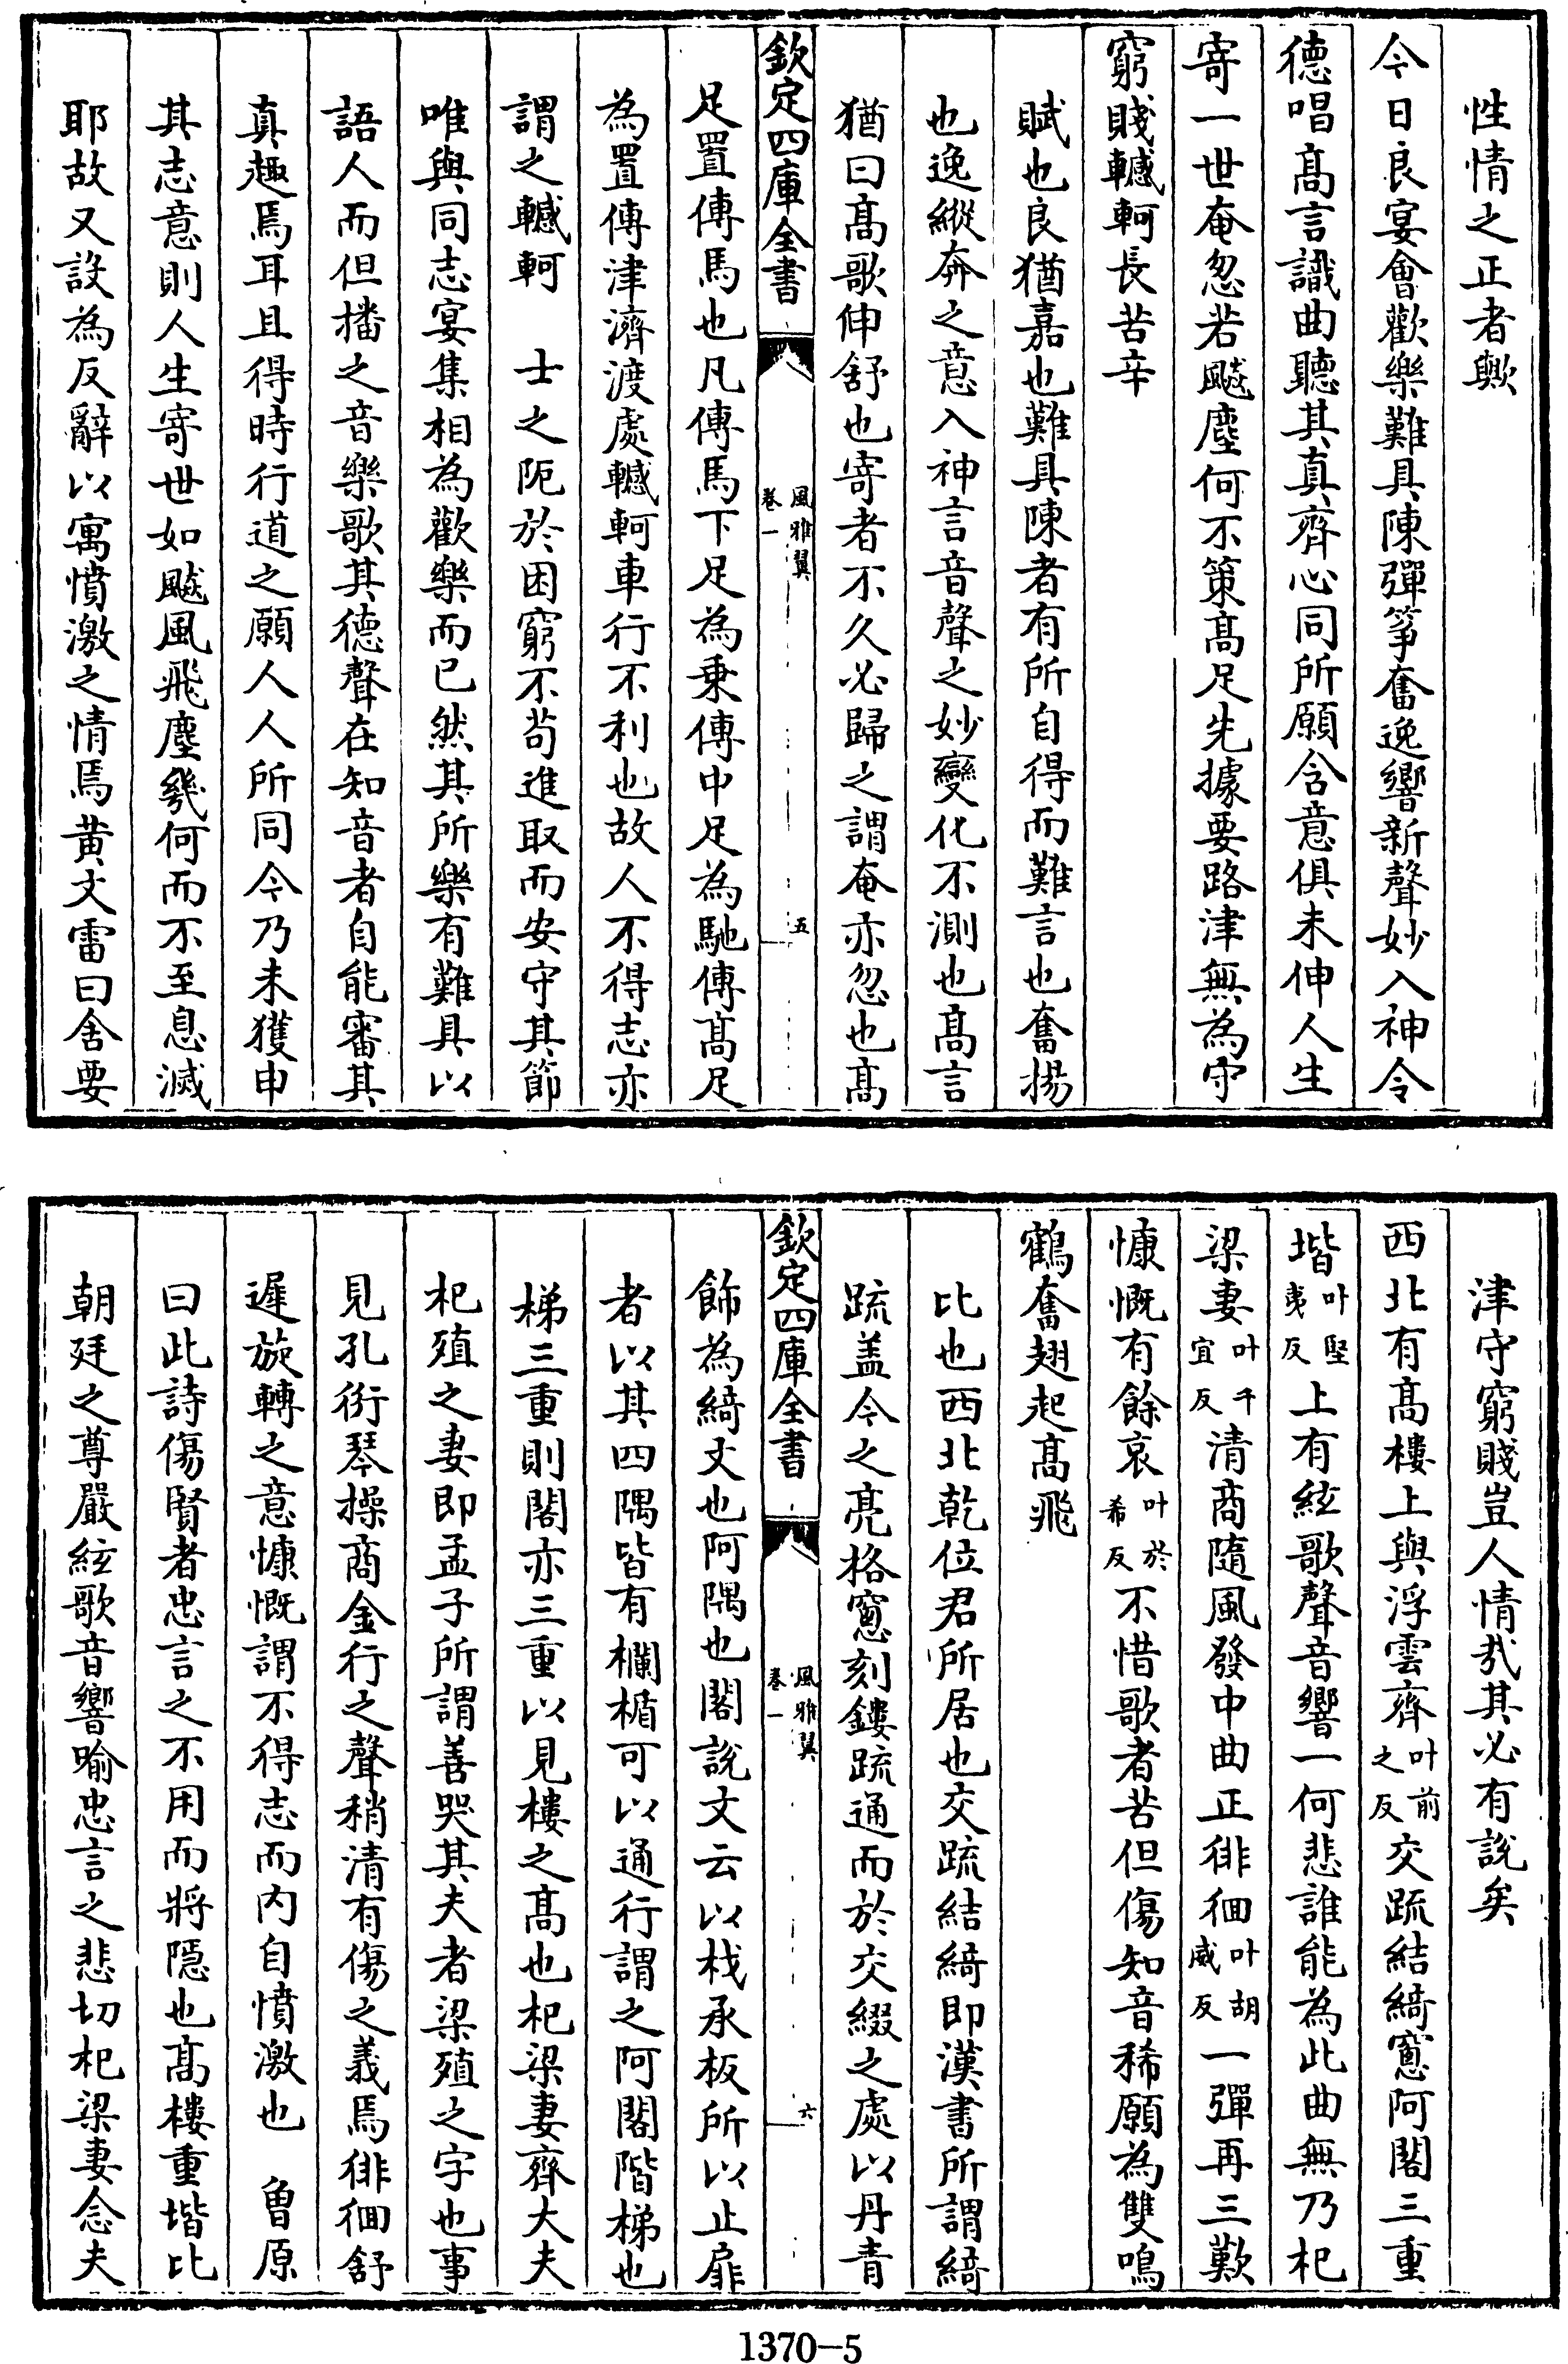 性情之正者歟
今日良宴會歡樂難具陳彈筝奮逸響新聲妙入神令
德唱髙言識曲聽其真齊心同所願含意俱未伸人生
寄一世奄忽若飈塵何不策髙足先據要路津無為守
窮賤轗軻長苦辛
賦也良猶嘉也難具陳者有所自得而難言也奮揚
也逸縱奔之意入神言音聲之妙變化不測也髙言
猶曰髙歌伸舒也寄者不久必歸之謂奄亦忽也髙
欽定四庫全書
風雅翼
卷一
五
足置傳馬也凡傳馬下足為乗傳中足為馳傳髙足
為置傳津濟渡處轗軻車行不利也故人不得志亦
謂之轗軻　士之阨於困窮不茍進取而安守其節
唯與同志宴集相為歡樂而已然其所樂有難具以
語人而但播之音樂歌其德聲在知音者自能審其
真趣焉耳且得時行道之願人人所同今乃未獲申
其志意則人生寄世如飈風飛塵幾何而不至息滅
耶故又設為反辭以寓憤激之情焉黄文雷曰舍要
津守窮賤豈人情哉其必有說矣
西北有髙樓上與浮雲齊叶前之反交疏結綺窻阿閣三重
堦叶堅夷反上有絃歌聲音響一何悲誰能為此曲無乃杞
梁妻叶千宜反清商隨風發中曲正徘徊叶胡威反一彈再三歎
慷慨有餘哀叶於希反不惜歌者苦但傷知音稀願為雙鳴
鶴奮翅起髙飛
比也西北乾位君所居也交疏結綺即漢書所謂綺
疏盖今之亮格窻刻鏤疏通而於交綴之處以丹青
欽定四庫全書
風雅翼
卷一
六
飾為綺文也阿隅也閣説文云以栈承板所以止扉
者以其四隅皆有欄楯可以通行謂之阿閣階梯也
梯三重則閣亦三重以見樓之髙也杞梁妻齊大夫
杞殖之妻即孟子所謂善哭其夫者梁殖之字也事
見孔衍琴操商金行之聲稍清有傷之義焉徘徊舒
遲旋轉之意慷慨謂不得志而内自憤激也　曽原
曰此詩傷賢者忠言之不用而將隱也髙樓重堦比
朝廷之尊嚴絃歌音響喻忠言之悲切杞梁妻念夫
1370-5